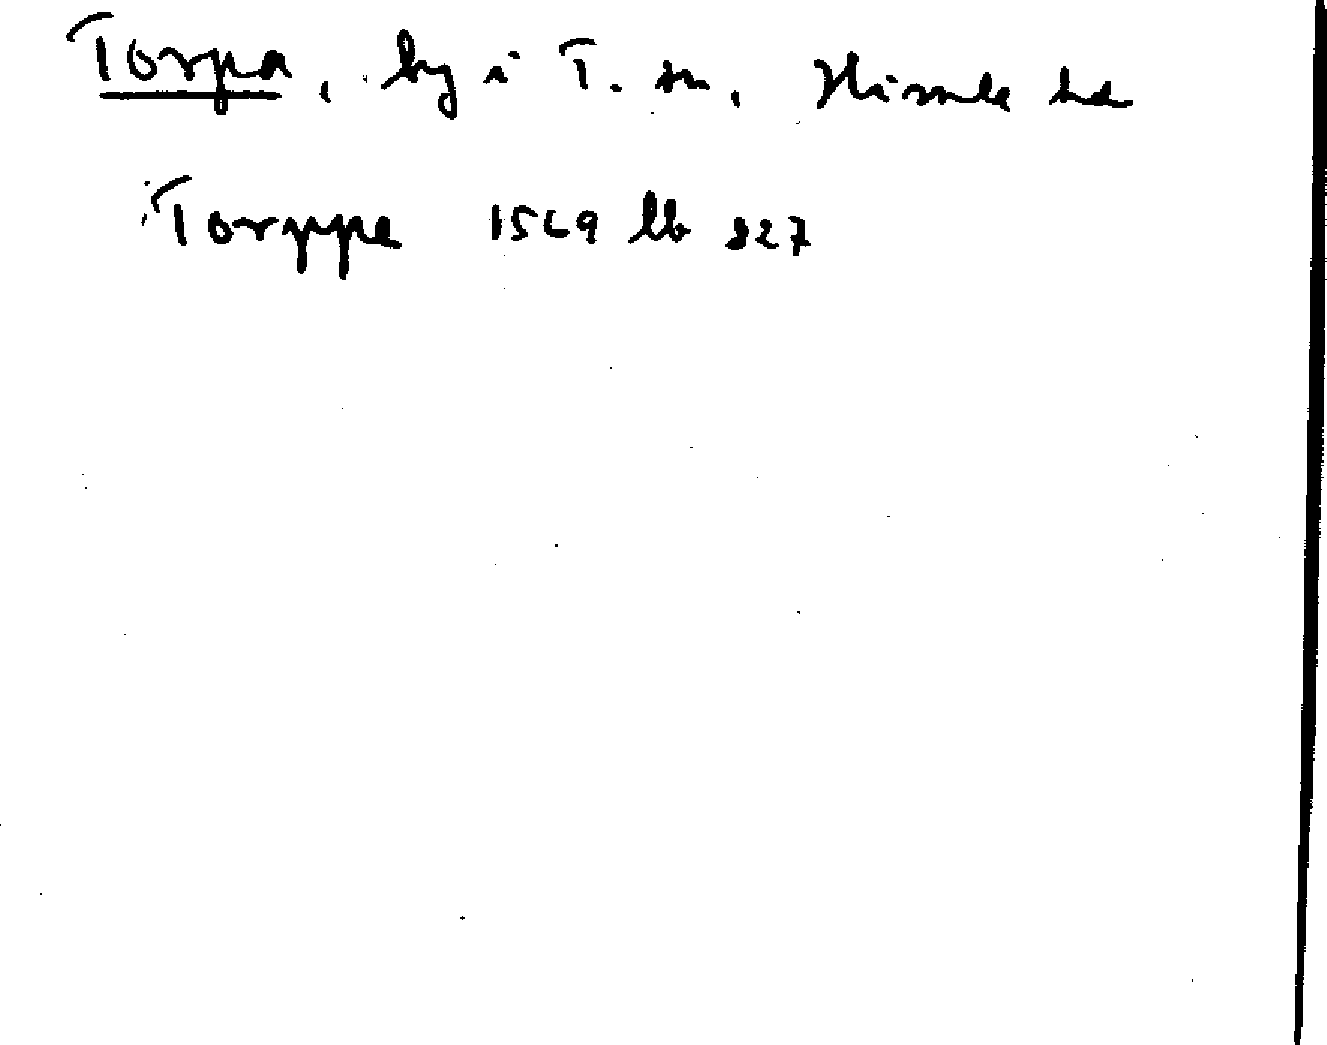 Torpa, by i T. sn, Himle hd
Torppe 1569 lb 327